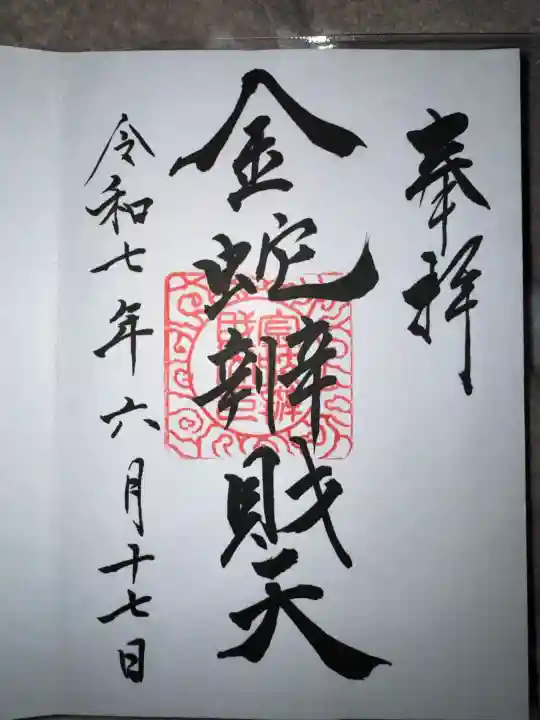 奉拝
金蛇辨財天
令和七年六月十七日